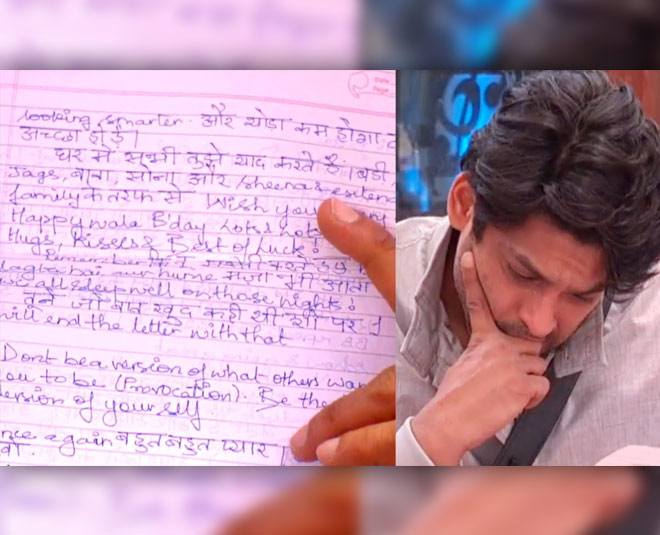 Date
Page
looking smarter. और थोड़ा कम होगा
अच्छा होई।
घर से सभी तुझे याद करते हैं। बडी
Jags, बाबा, सोना और Sheena & exten
family के तरफ से Wish you
Happy wala B'day Lots & Lots
Hugs, Kisses & Best of Luck!
Remember कि
lagta hai aur hume मजा भी आता
we all sleep well on those nights!
तूने जो बात खुद कही थी उसी पर
will end the letter with that
Dont be a version of what others wan
you to be (Provocation). Be the
version of yourself.
nce again बहुत बहुत प्यार